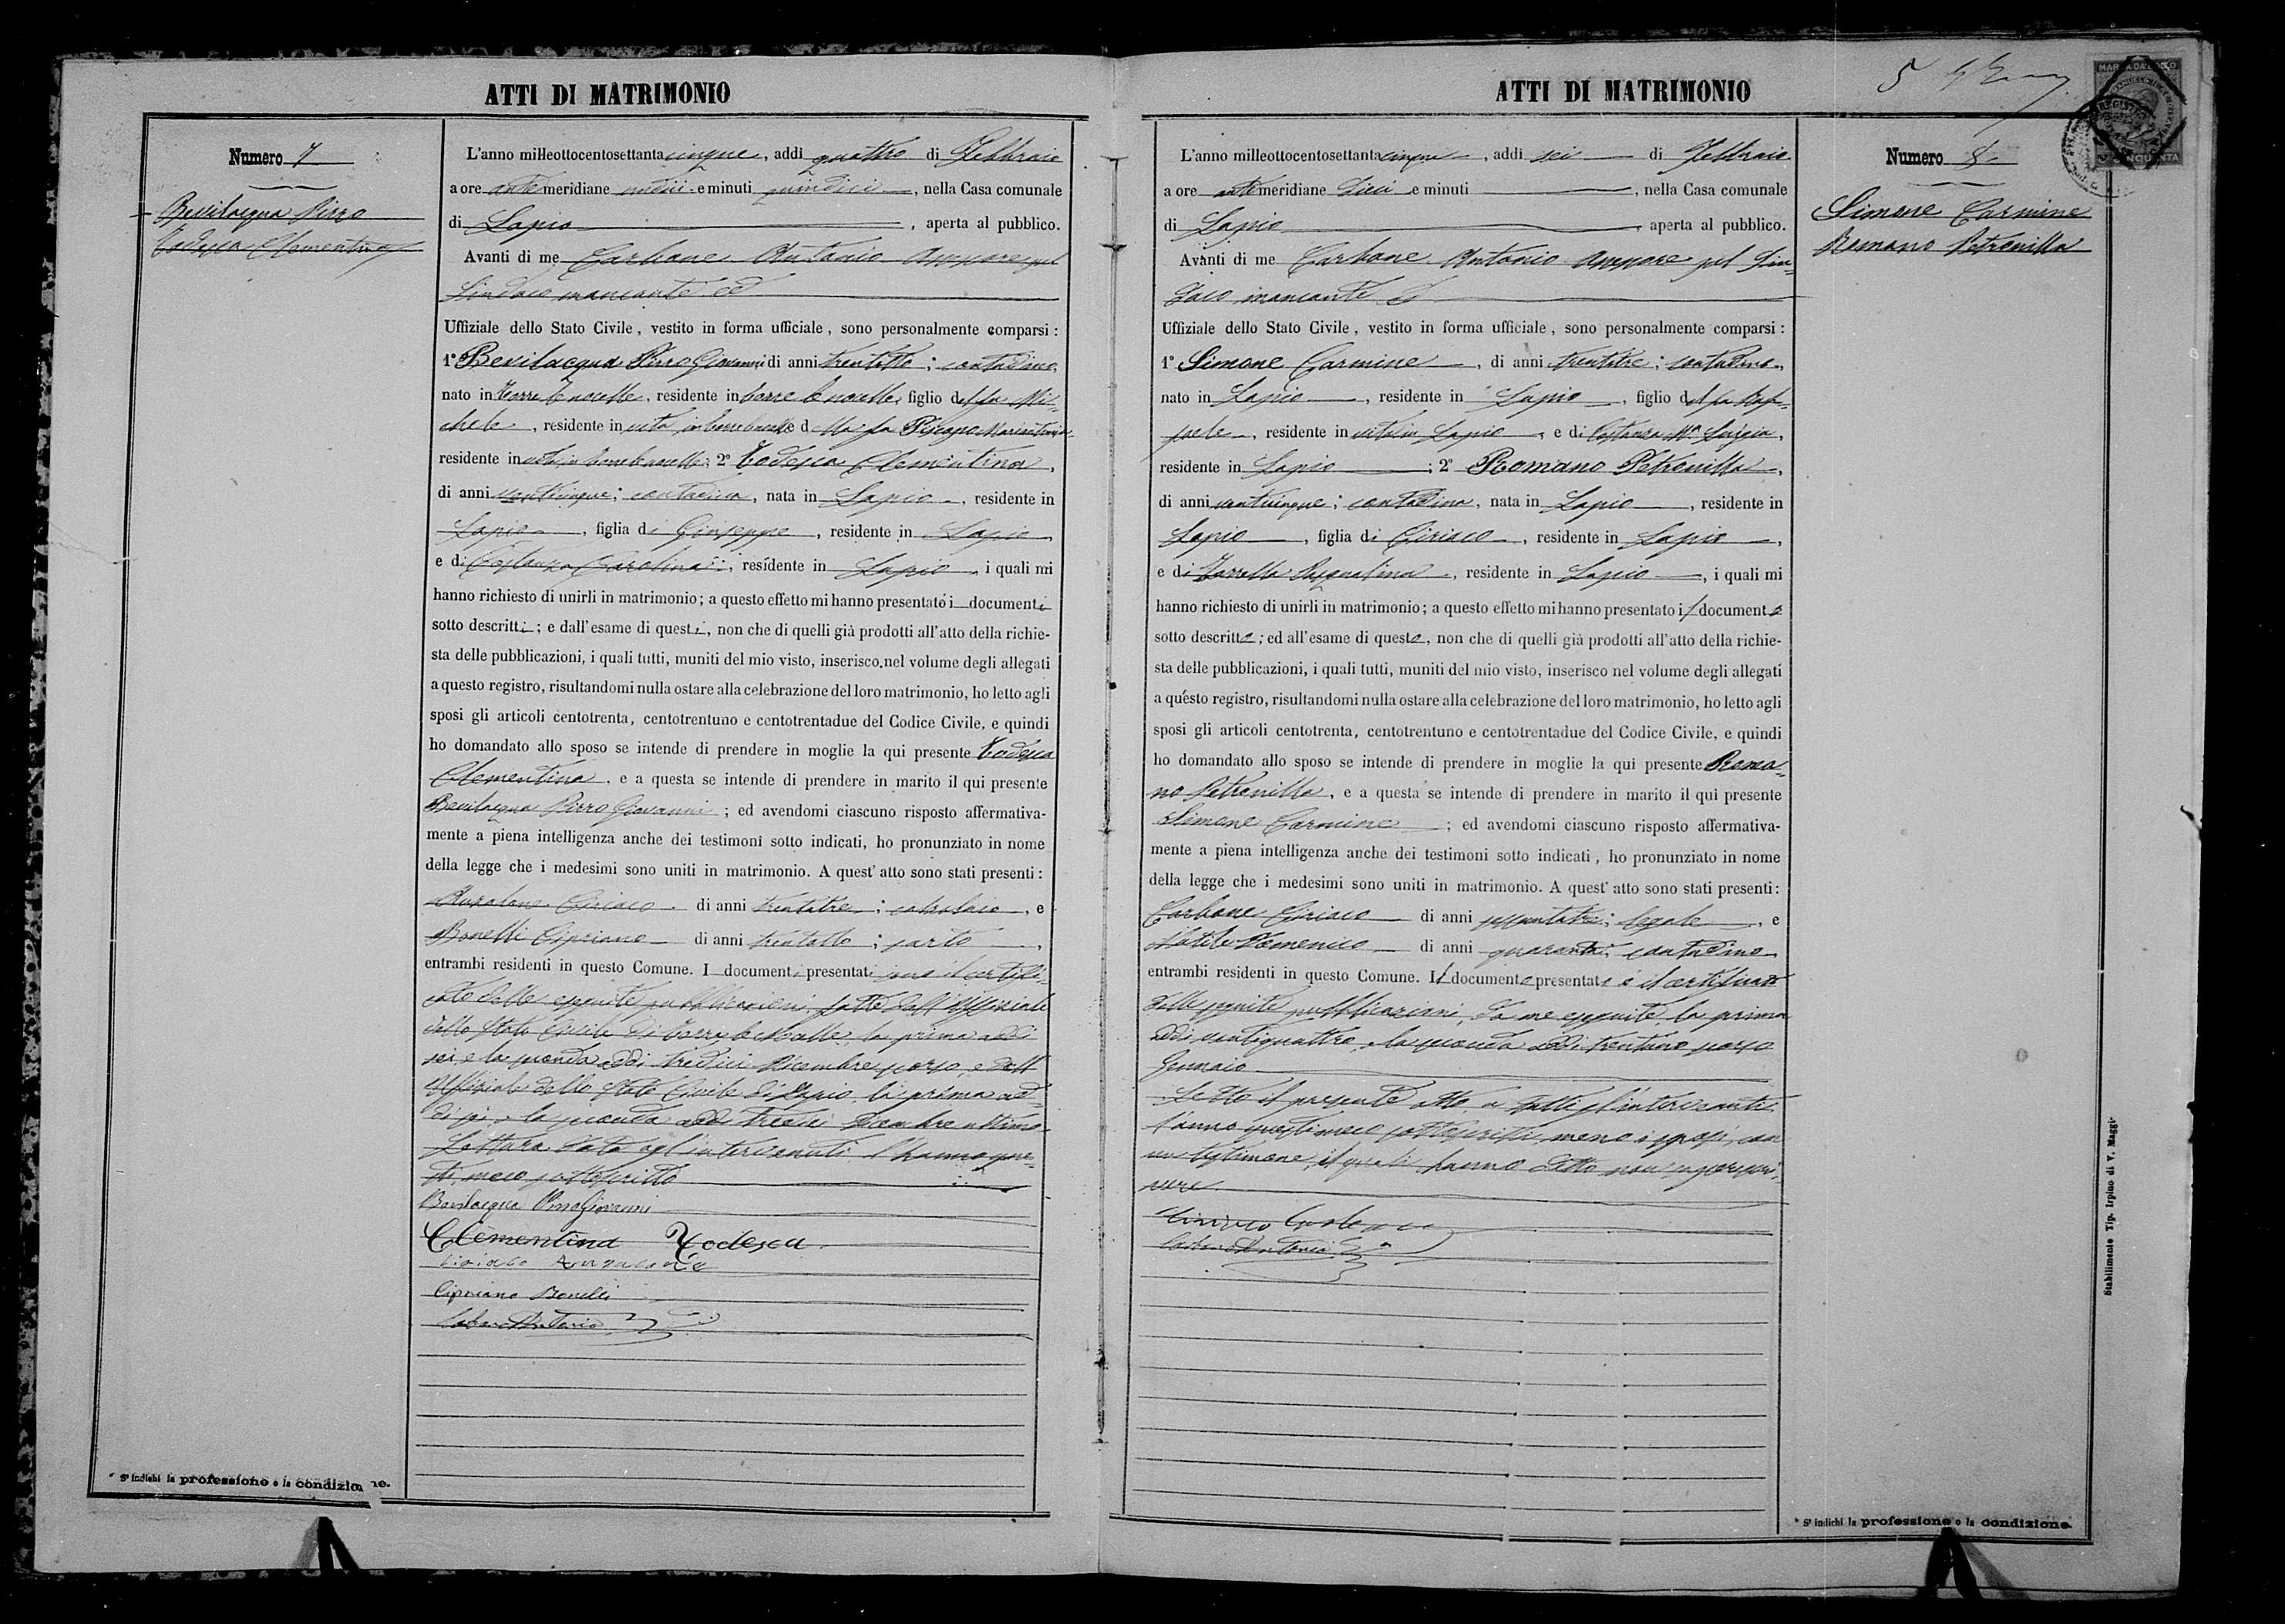 ATTI DI MATRIMONIO
Numero 7
Bevilacqua Pirro
Todesca Clementina
L'anno milleottocentosettantacinque, addì quattro di Febbraio
a ore antemeridiane undici e minuti quindici, nella Casa comunale
di Lapio, aperta al pubblico.
Avanti di me Carbone Antonio Assessore pel
Sindaco mancante ed
Uffiziale dello Stato Civile, vestito in forma ufficiale, sono personalmente comparsi:
1° Bevilacqua Pirro Giovanni di anni trentotto; contadino,
nato in Torre le nocelle, residente in Torre le nocelle, figlio del fu Mi-
chele, residente in vita in Torre le nocelle e della fu
residente in vita in Torre le nocelle; 2° Todesca Clementina,
di anni venticinque; contadina, nata in Lapio, residente in
Lapio, figlia di Giuseppe, residente in Lapio,
e di Costanza Carolina, residente in Lapio, i quali mi
hanno richiesto di unirli in matrimonio; a questo effetto mi hanno presentato i documenti
sotto descritti; e dall'esame di questi, non che di quelli già prodotti all'atto della richie-
sta delle pubblicazioni, i quali tutti, muniti del mio visto, inserisco nel volume degli allegati
a questo registro, risultandomi nulla ostare alla celebrazione del loro matrimonio, ho letto agli
sposi gli articoli centotrenta, centotrentuno e centotrentadue del Codice Civile, e quindi
ho domandato allo sposo se intende di prendere in moglie la qui presente Todesca
Clementina, e a questa se intende di prendere in marito il qui presente
Bevilacqua Pirro Giovanni; ed avendomi ciascuno risposto affermativa-
mente a piena intelligenza anche dei testimoni sotto indicati, ho pronunziato in nome
della legge che i medesimi sono uniti in matrimonio. A quest'atto sono stati presenti:
Anzalone Ciriaco di anni trentatre; calzolaio, e
Bonelli Cipriano di anni trentotto; sarto,
entrambi residenti in questo Comune. I documenti presentati sono il certifi-
cato delle eseguite pubblicazioni fatte dall'Uffiziale
dello Stato Civile di Torre le Nocelle, la prima addì
sei, e la seconda addì tredici Dicembre scorso, e dall'
Uffiziale dello Stato Civile di Lapio la prima ad-
dì sei, e la seconda addì tredici Dicembre ultimo.
Lettura data agl'intervenuti l'hanno que-
sti meco sottoscritto
Bevilacqua Pirro Giovanni
Clementina Todesca
Ciriaco Anzalone
Cipriano Bonelli
Carbone Antonio
* S' indichi la professione o la condizione.
ATTI DI MATRIMONIO
5
Numero 8
Simone Carmine
Romano Petronilla
L'anno milleottocentosettantacinque, addì sei di Febbraio
a ore antemeridiane dieci e minuti, nella Casa comunale
di Lapio, aperta al pubblico.
Avanti di me Carbone Antonio Assessore pel Sin-
daco mancante ed
Uffiziale dello Stato Civile, vestito in forma ufficiale, sono personalmente comparsi:
1° Simone Carmine, di anni trentatre; contadino,
nato in Lapio, residente in Lapio, figlio del fu Raf-
faele, residente in vita in Lapio, e di Costanza Ma Luigia,
residente in Lapio; 2° Romano Petronilla,
di anni venticinque; contadina, nata in Lapio, residente in
Lapio, figlia di Ciriaco, residente in Lapio,
e di Zarrella Pasqualina, residente in Lapio, i quali mi
hanno richiesto di unirli in matrimonio; a questo effetto mi hanno presentato il documento
sotto descritto; ed all'esame di questo, non che di quelli già prodotti all'atto della richie-
sta delle pubblicazioni, i quali tutti, muniti del mio visto, inserisco nel volume degli allegati
a questo registro, risultandomi nulla ostare alla celebrazione del loro matrimonio, ho letto agli
sposi gli articoli centotrenta, centotrentuno e centotrentadue del Codice Civile, e quindi
ho domandato allo sposo se intende di prendere in moglie la qui presente Roma-
no Petronilla, e a questa se intende di prendere in marito il qui presente
Simone Carmine; ed avendomi ciascuno risposto affermativa-
mente a piena intelligenza anche dei testimoni sotto indicati, ho pronunziato in nome
della legge che i medesimi sono uniti in matrimonio. A quest'atto sono stati presenti:
Carbone Ciriaco di anni sessantatre; legale, e
Domenico di anni quaranta; contadino
entrambi residenti in questo Comune. Il documento presentato è il certificato
delle eseguite pubblicazioni, da me eseguite, la prima
addì ventiquattro, e la seconda addì trentuno scorso
Gennaio
Letto il presente atto a tutti gl'intervenuti
l'hanno questi meco sottoscritto, meno i sposi, con
un testimone, i quali hanno detto non saper scri-
vere
Ciriaco Carbone
Carbone Antonio
* S' indichi la professione o la condizione.
Stabilimento Tip. Irpino di V. Maggi